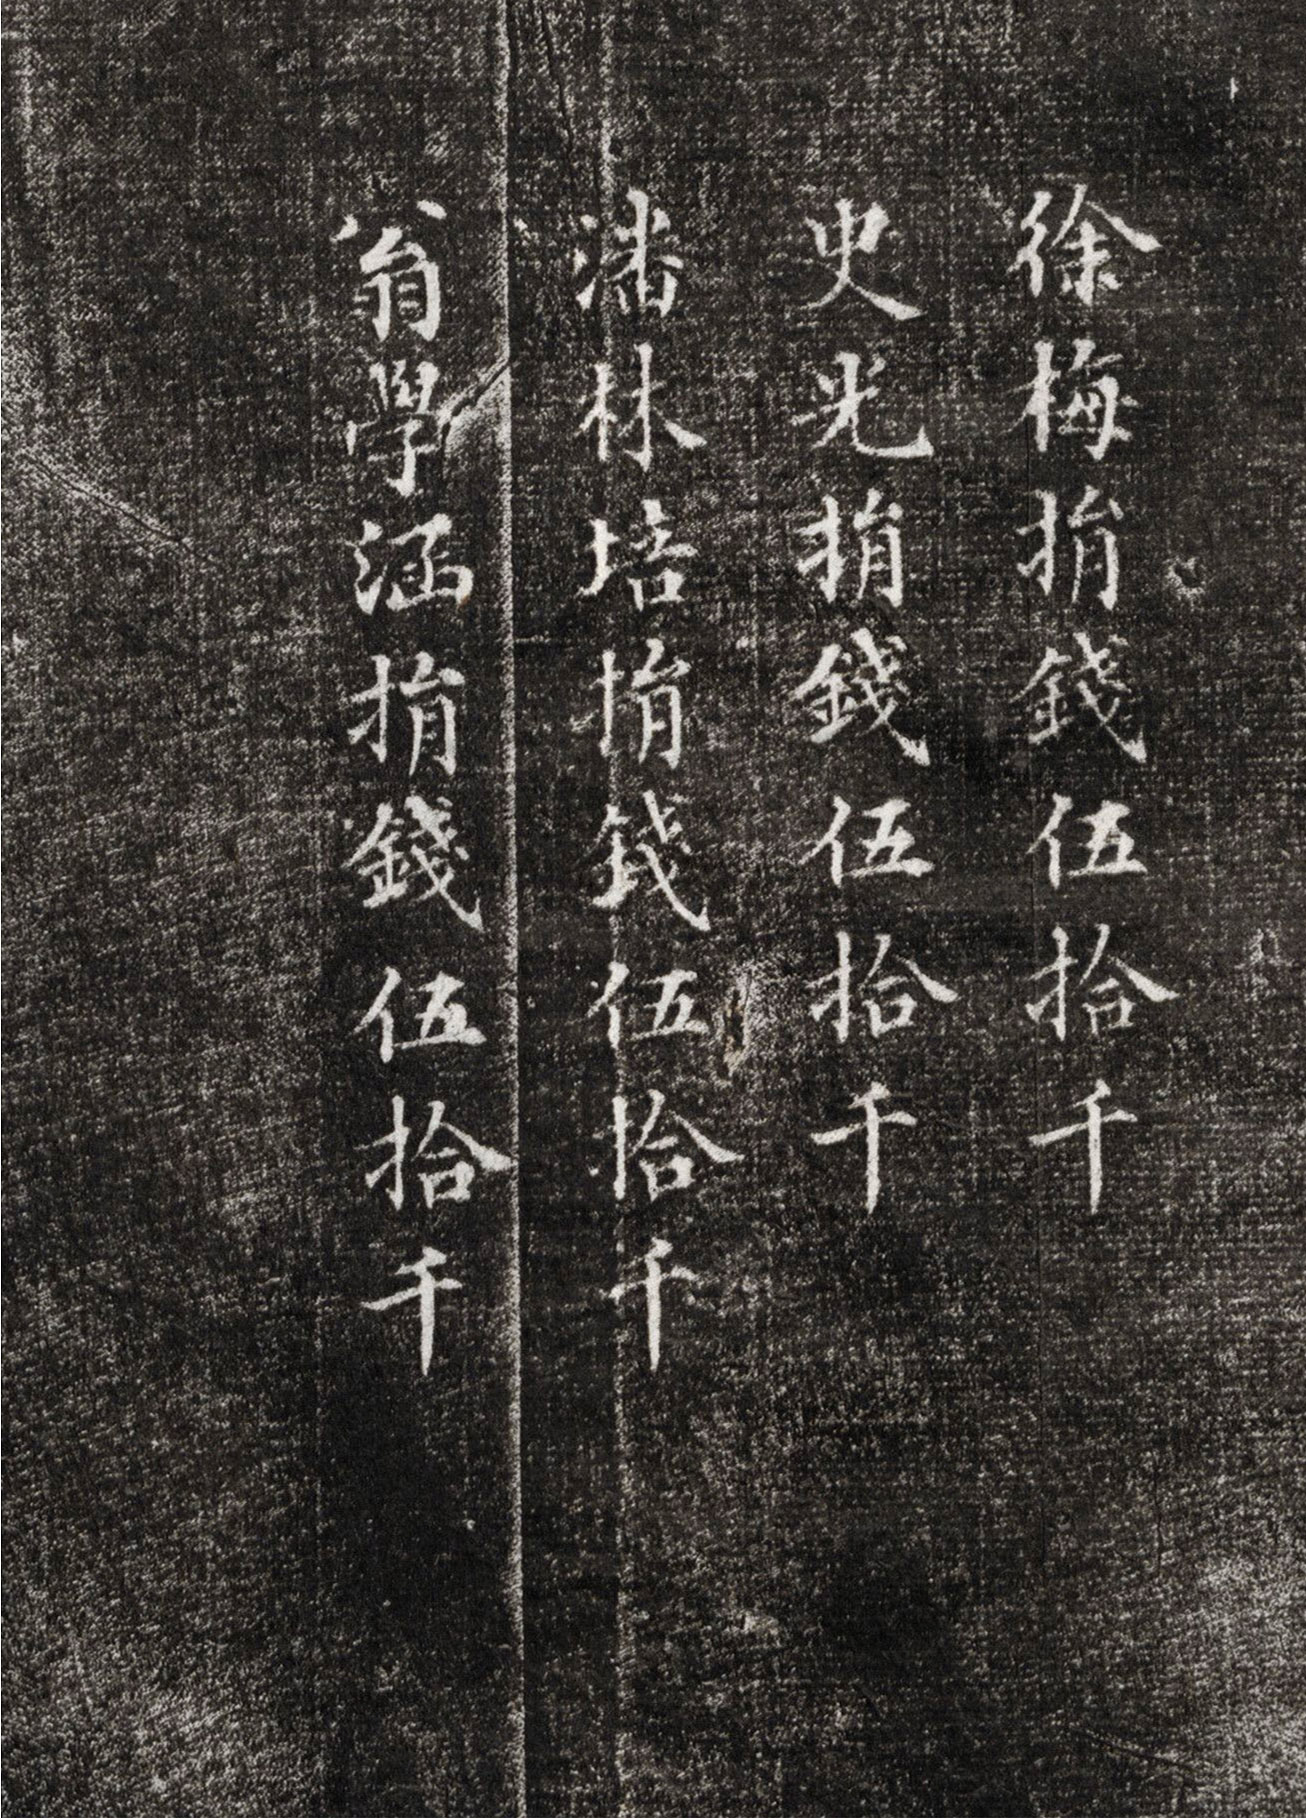 徐梅捐錢伍拾千
史光捐錢伍拾千
潘林培捐錢伍拾千
翁學涵捐錢伍拾千